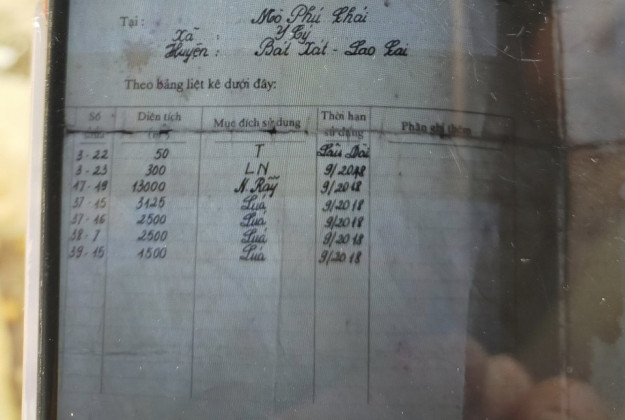 Tại : Mò Phú Chải
Xã : Y Tý
Huyện : Bát Xát - Lào Cai
Theo bảng liệt kê dưới đây:
Số Diện tích Mục đích sử dụng Thời hạn sử dụng Phần ghi thêm
3-22 50 T Lâu Dài
3-23 300 LN 9/2048
17-19 13000 N.Rẫy 9/2018
37-15 3125 Lúa 9/2018
37-16 2500 Lúa 9/2018
38-7 2500 Lúa 9/2018
39-15 1500 Lúa 9/2018